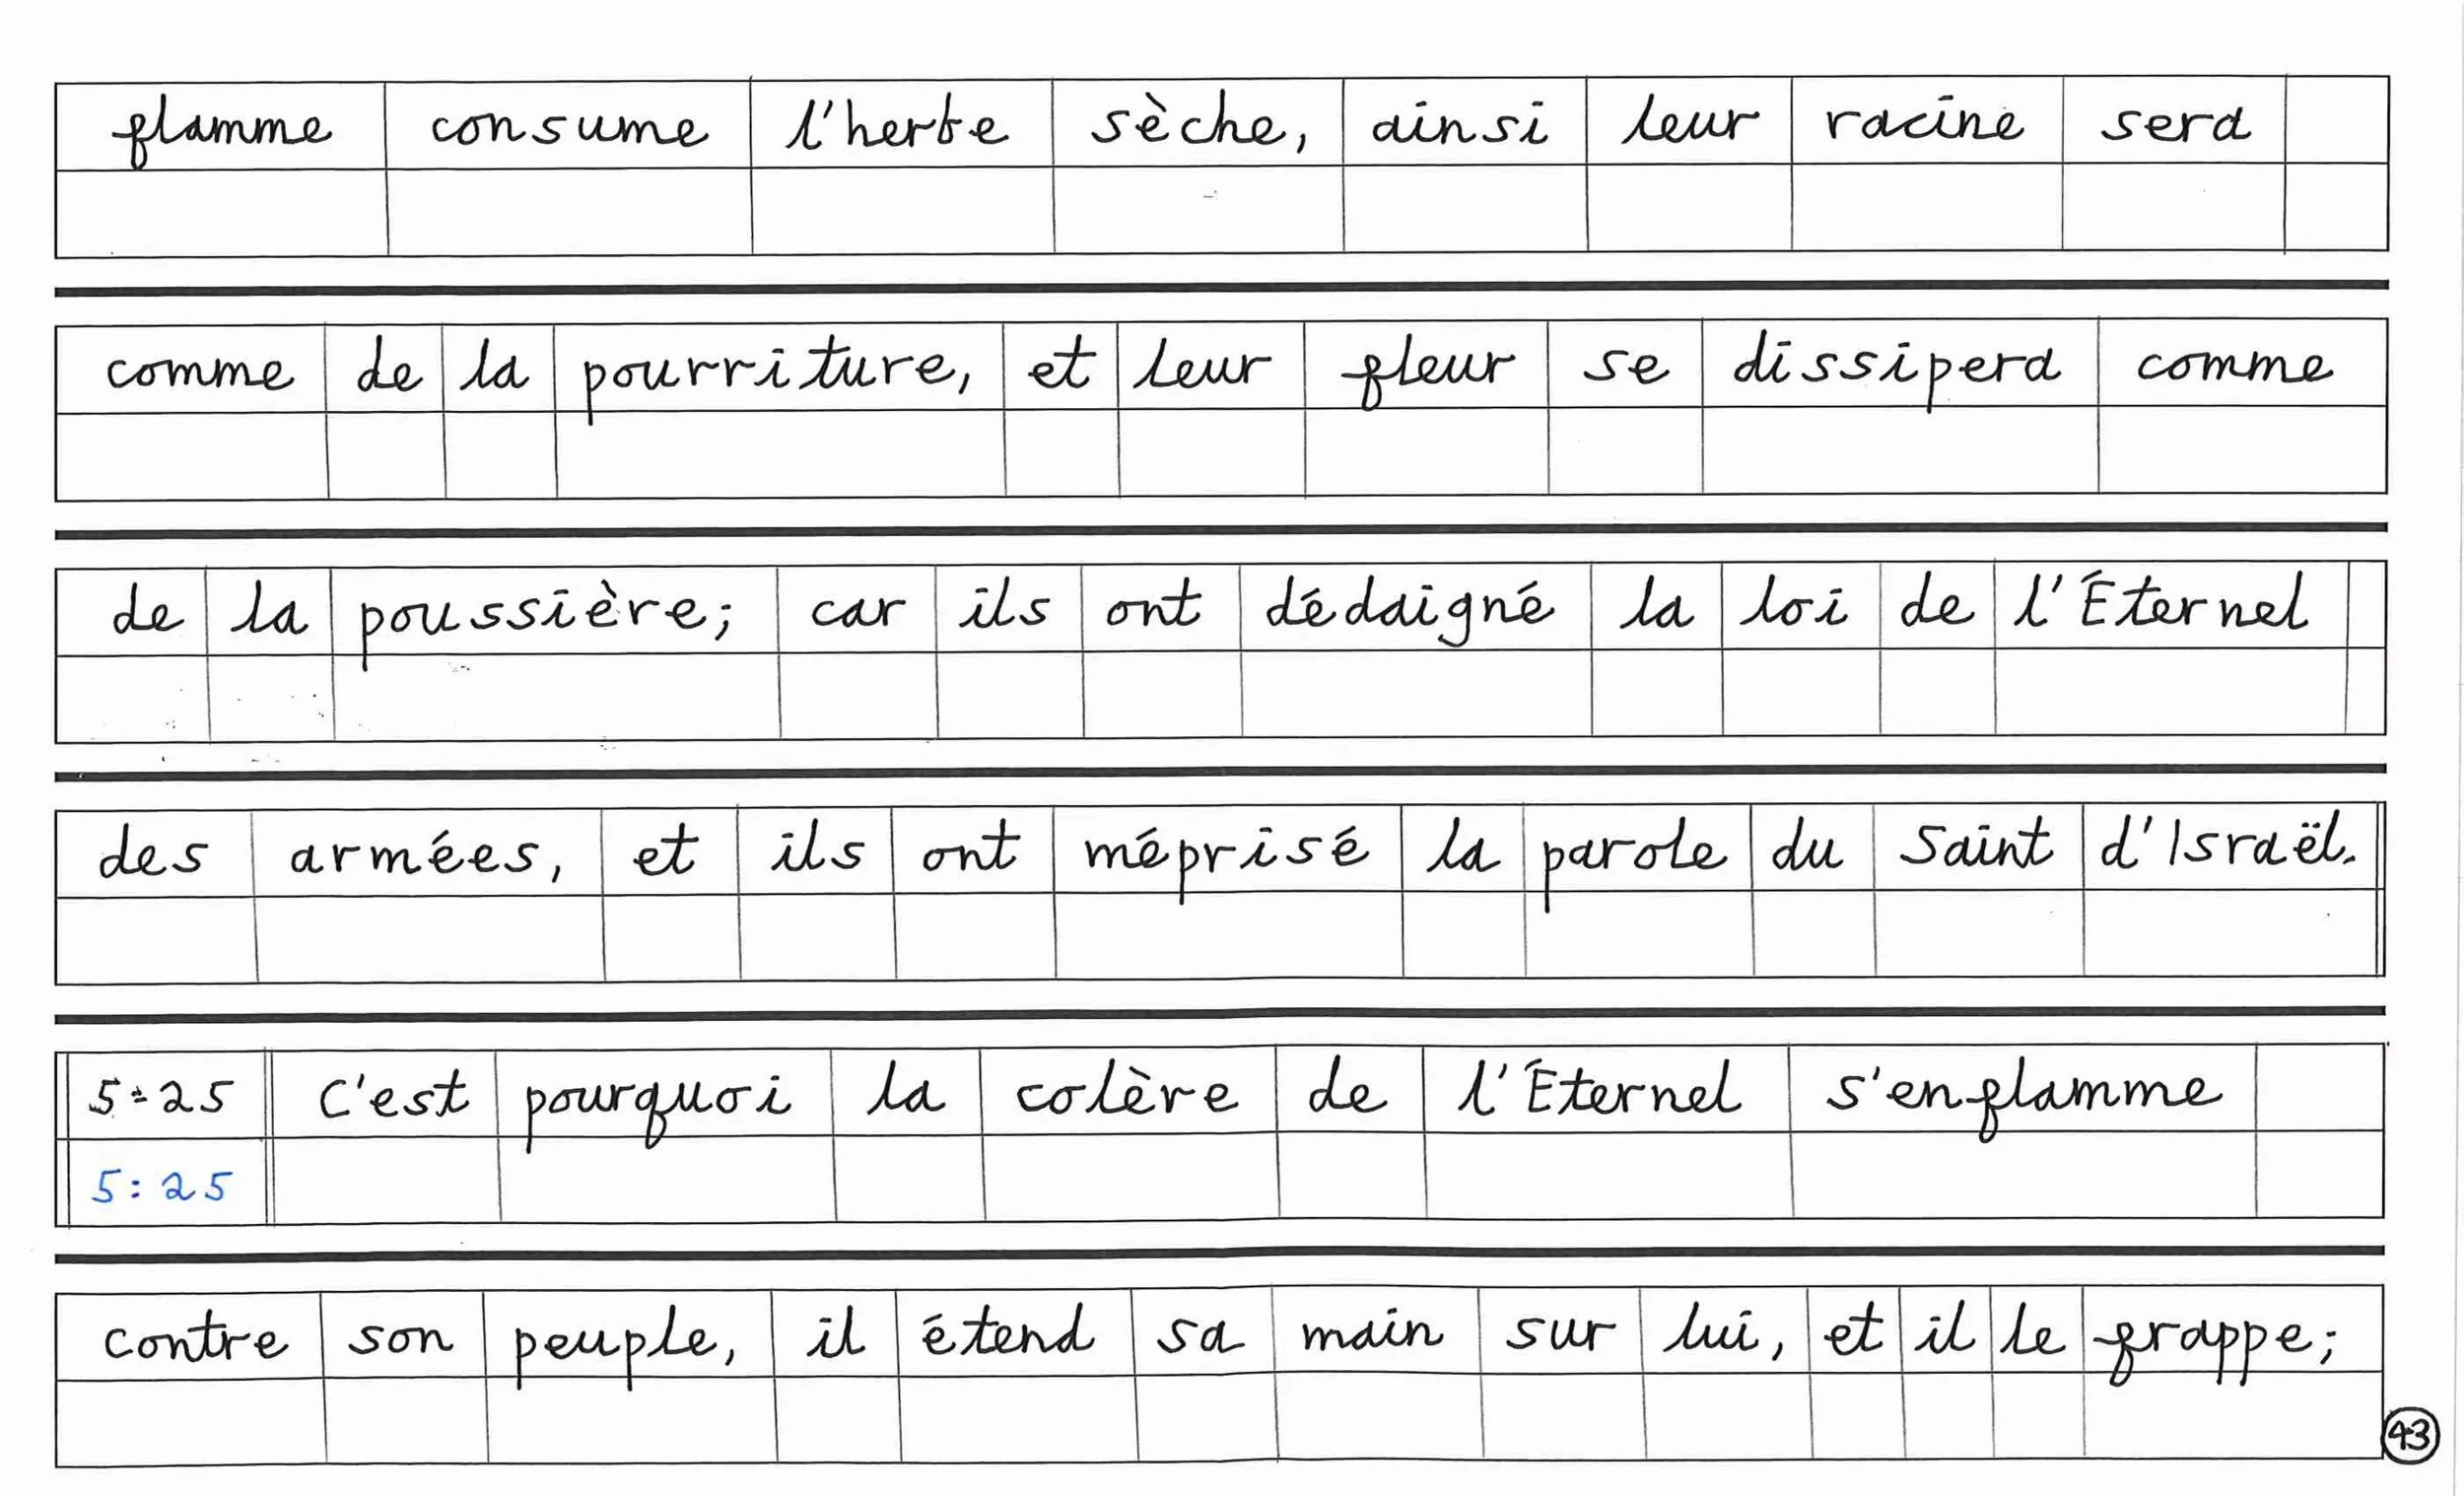 flamme consume l'herbe sèche, ainsi leur racine sera
comme de la pourriture, et leur fleur se dissipera comme
de la poussière; car ils ont dédaigné la loi de l'Éternel
des armées, et ils ont méprisé la parole du Saint d'Israël.
5:25 C'est pourquoi la colère de l'Éternel s'enflamme
5:25
contre son peuple, il étend sa main sur lui, et il le frappe;
43